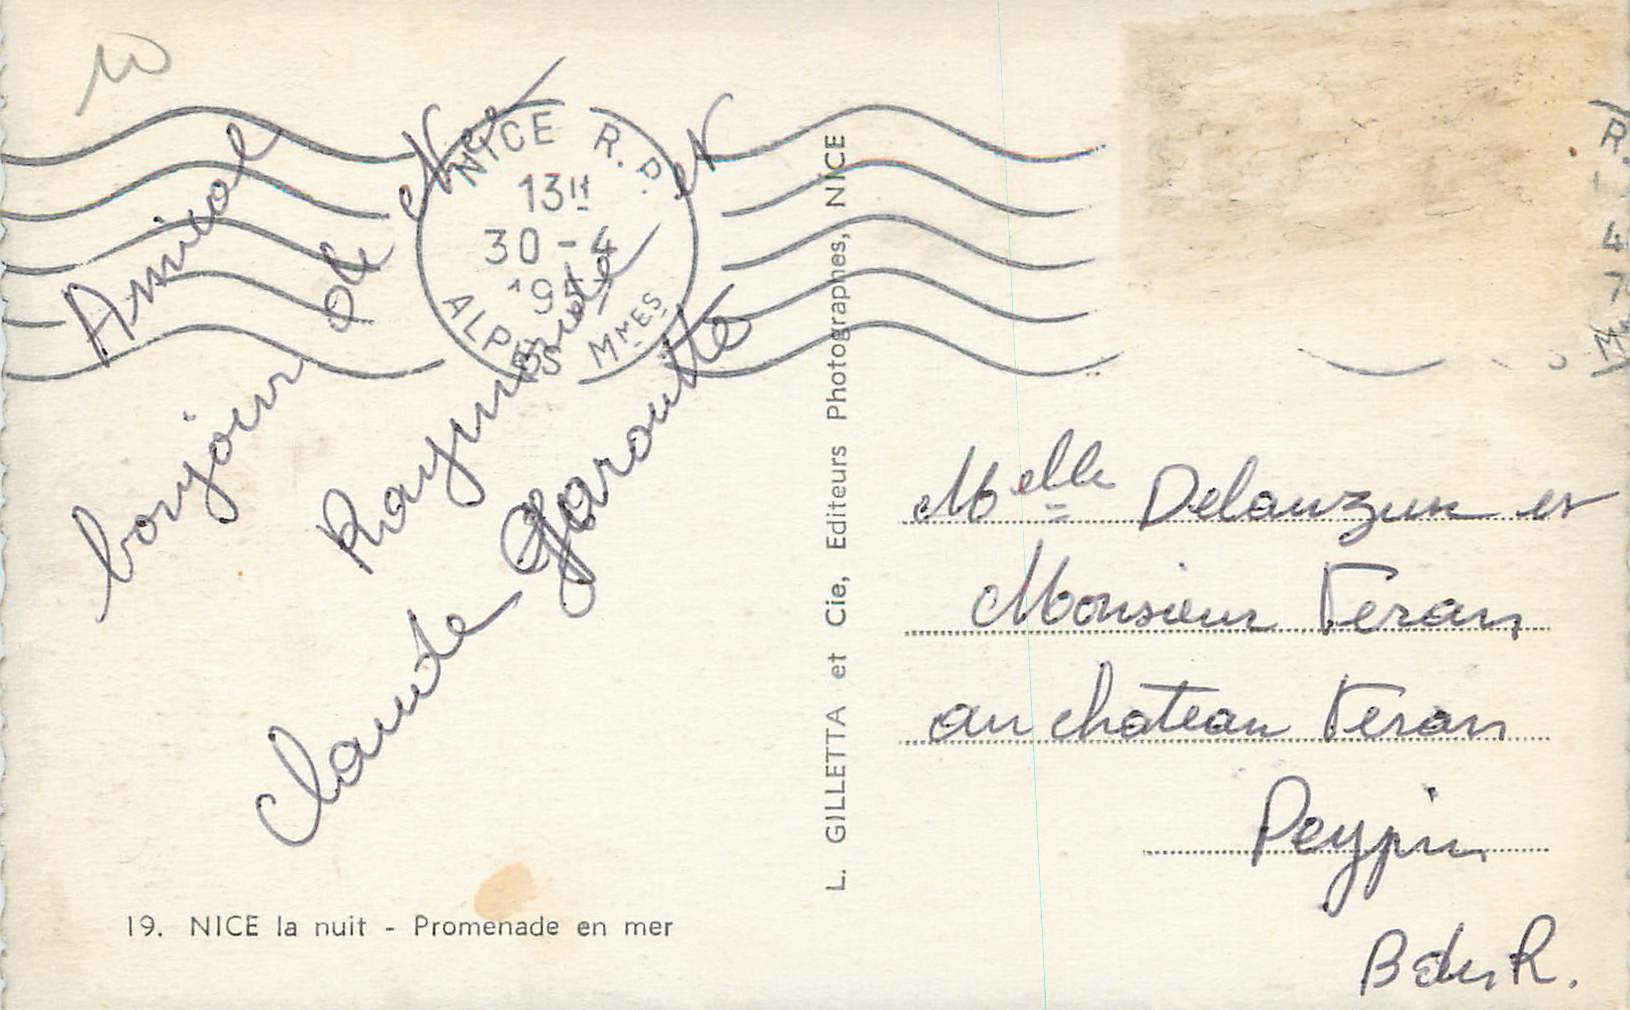 10
Amical
bonjour de Nice
Raymonde et
Claude Garoutte
NICE R.P.
13H
30-4
195
ALPES MMES
19. NICE la nuit - Promenade en mer
L. GILLETTA et Cie, Editeurs Photographes, NICE
R.
4
7
M
Melle Delauzun et
Monsieur Feran
au chateau Feran
Peypin
B du R.